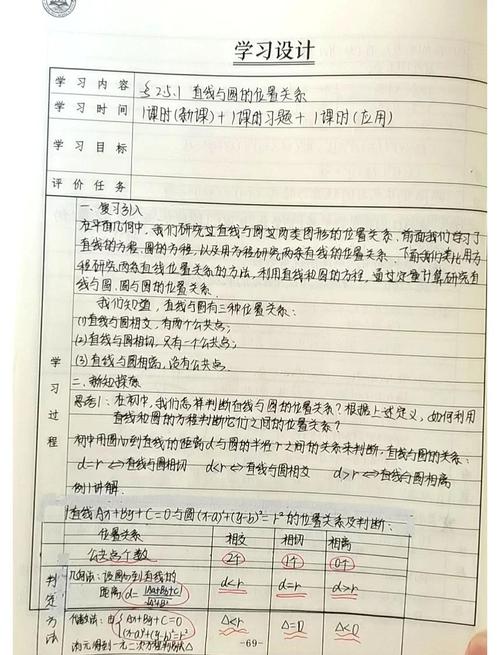 学习设计
学习内容 §2.5.1 直线与圆的位置关系
学习时间 1课时(新课)+1课时习题+1课时(应用)
学习目标
评价任务
一、复习引入
在平面几何中,我们研究过直线与圆这两类图形的位置关系,前面我们学习了
直线的方程、圆的方程,以及用方程研究两条直线的位置关系,下面我们类比用方
程研究两条直线位置关系的方法,利用直线和圆的方程,通过定量计算研究直
线与圆、圆与圆的位置关系.
我们知道,直线与圆有三种位置关系:
(1)直线与圆相交,有两个公共点;
(2)直线与圆相切,只有一个公共点;
(3)直线与圆相离,没有公共点.
学习过程
二、新知探究
思考1:在初中,我们怎样判断直线与圆的位置关系?根据上述定义,如何利用
直线和圆的方程判断它们之间的位置关系?
初中用圆心到直线的距离d与圆的半径r之间的关系来判断,直线与圆的关系:
d=r⇔直线与圆相切 d<r⇔直线与圆相交 d>r⇔直线与圆相离
例1讲解.
直线Ax+By+C=0与圆(x-a)²+(y-b)²=r²的位置关系及判断:
位置关系 相交 相切 相离
公共点个数 2个 1个 0个
判定方法
几何法:设圆心到直线的
距离d=|Aa+Bb+C|/√A²+B² d<r d=r d>r
代数法:由{Ax+By+C=0
(x-a)²+(y-b)²=r² Δ>0 Δ=0 Δ<0
消元得到一元二次方程判别式Δ
-69-